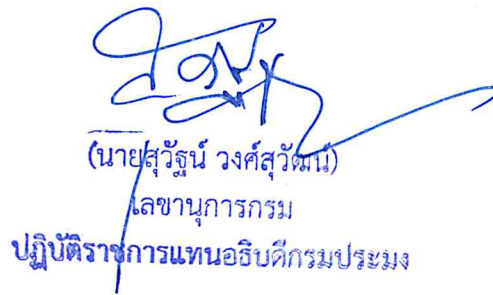 (นายสุวัฐน์ วงศ์สุวัฒน์)
เลขานุการกรม
ปฏิบัติราชการแทนอธิบดีกรมประมง